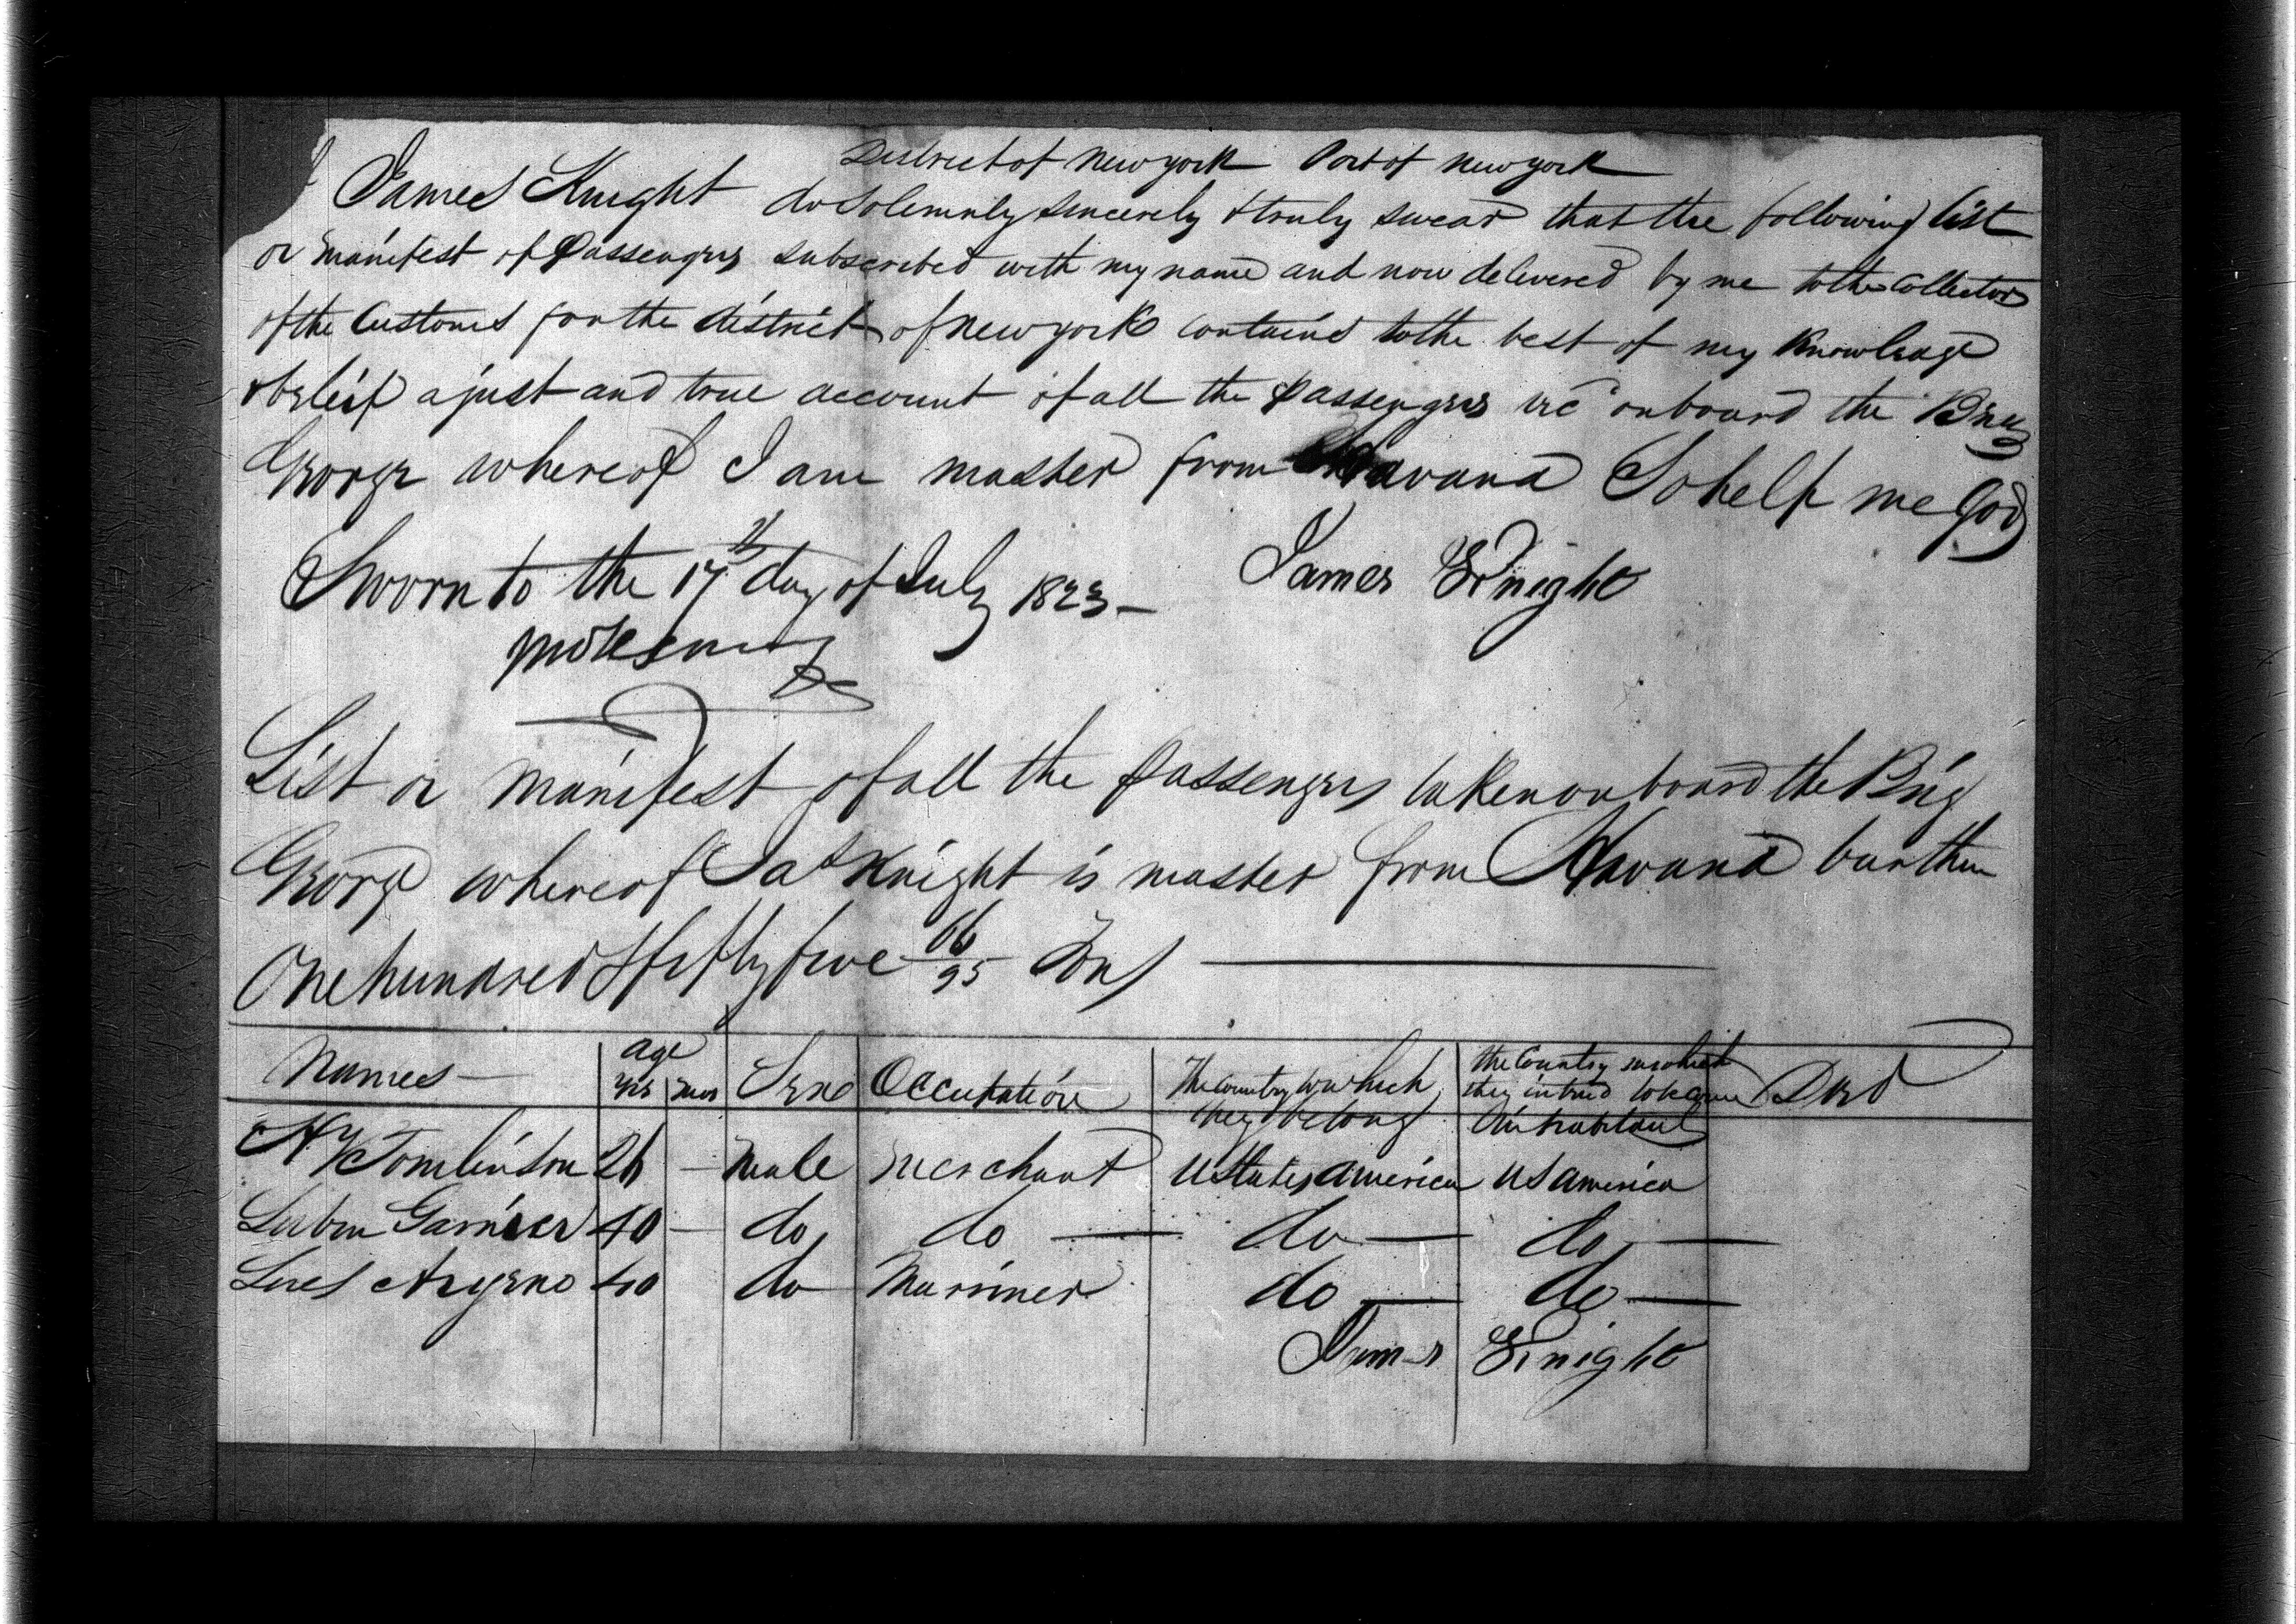 District of New york Port of New york
I James Knight do solemnly sincerely & truly swear that the following list
or manifest of Passengers subscribed with my name and now delivered by me to the Collector
of the Customs for the district of New york contains to the best of my Knowledge
& beleif a just and true account of all the passengers rec'd onboard the Brig
George whereof I am master from Havana So help me God
Sworn to the 17th day of July 1823 — James Knight
List or manifest of all the passengers taken on board the Brig
George whereof Jas Knight is master from Havana burthen
One hundred & fifty five 66/95 Tons
Names — age yrs mos Sex Occupation The Country to which they belong the Country in which they intend to become Inhabitants Died
A Tomlinson 26 — Male Merchant U States america U S america
Lubin Garnier 40 — do do — do — do —
Luis 40 do Mariner do — do —
James Knight